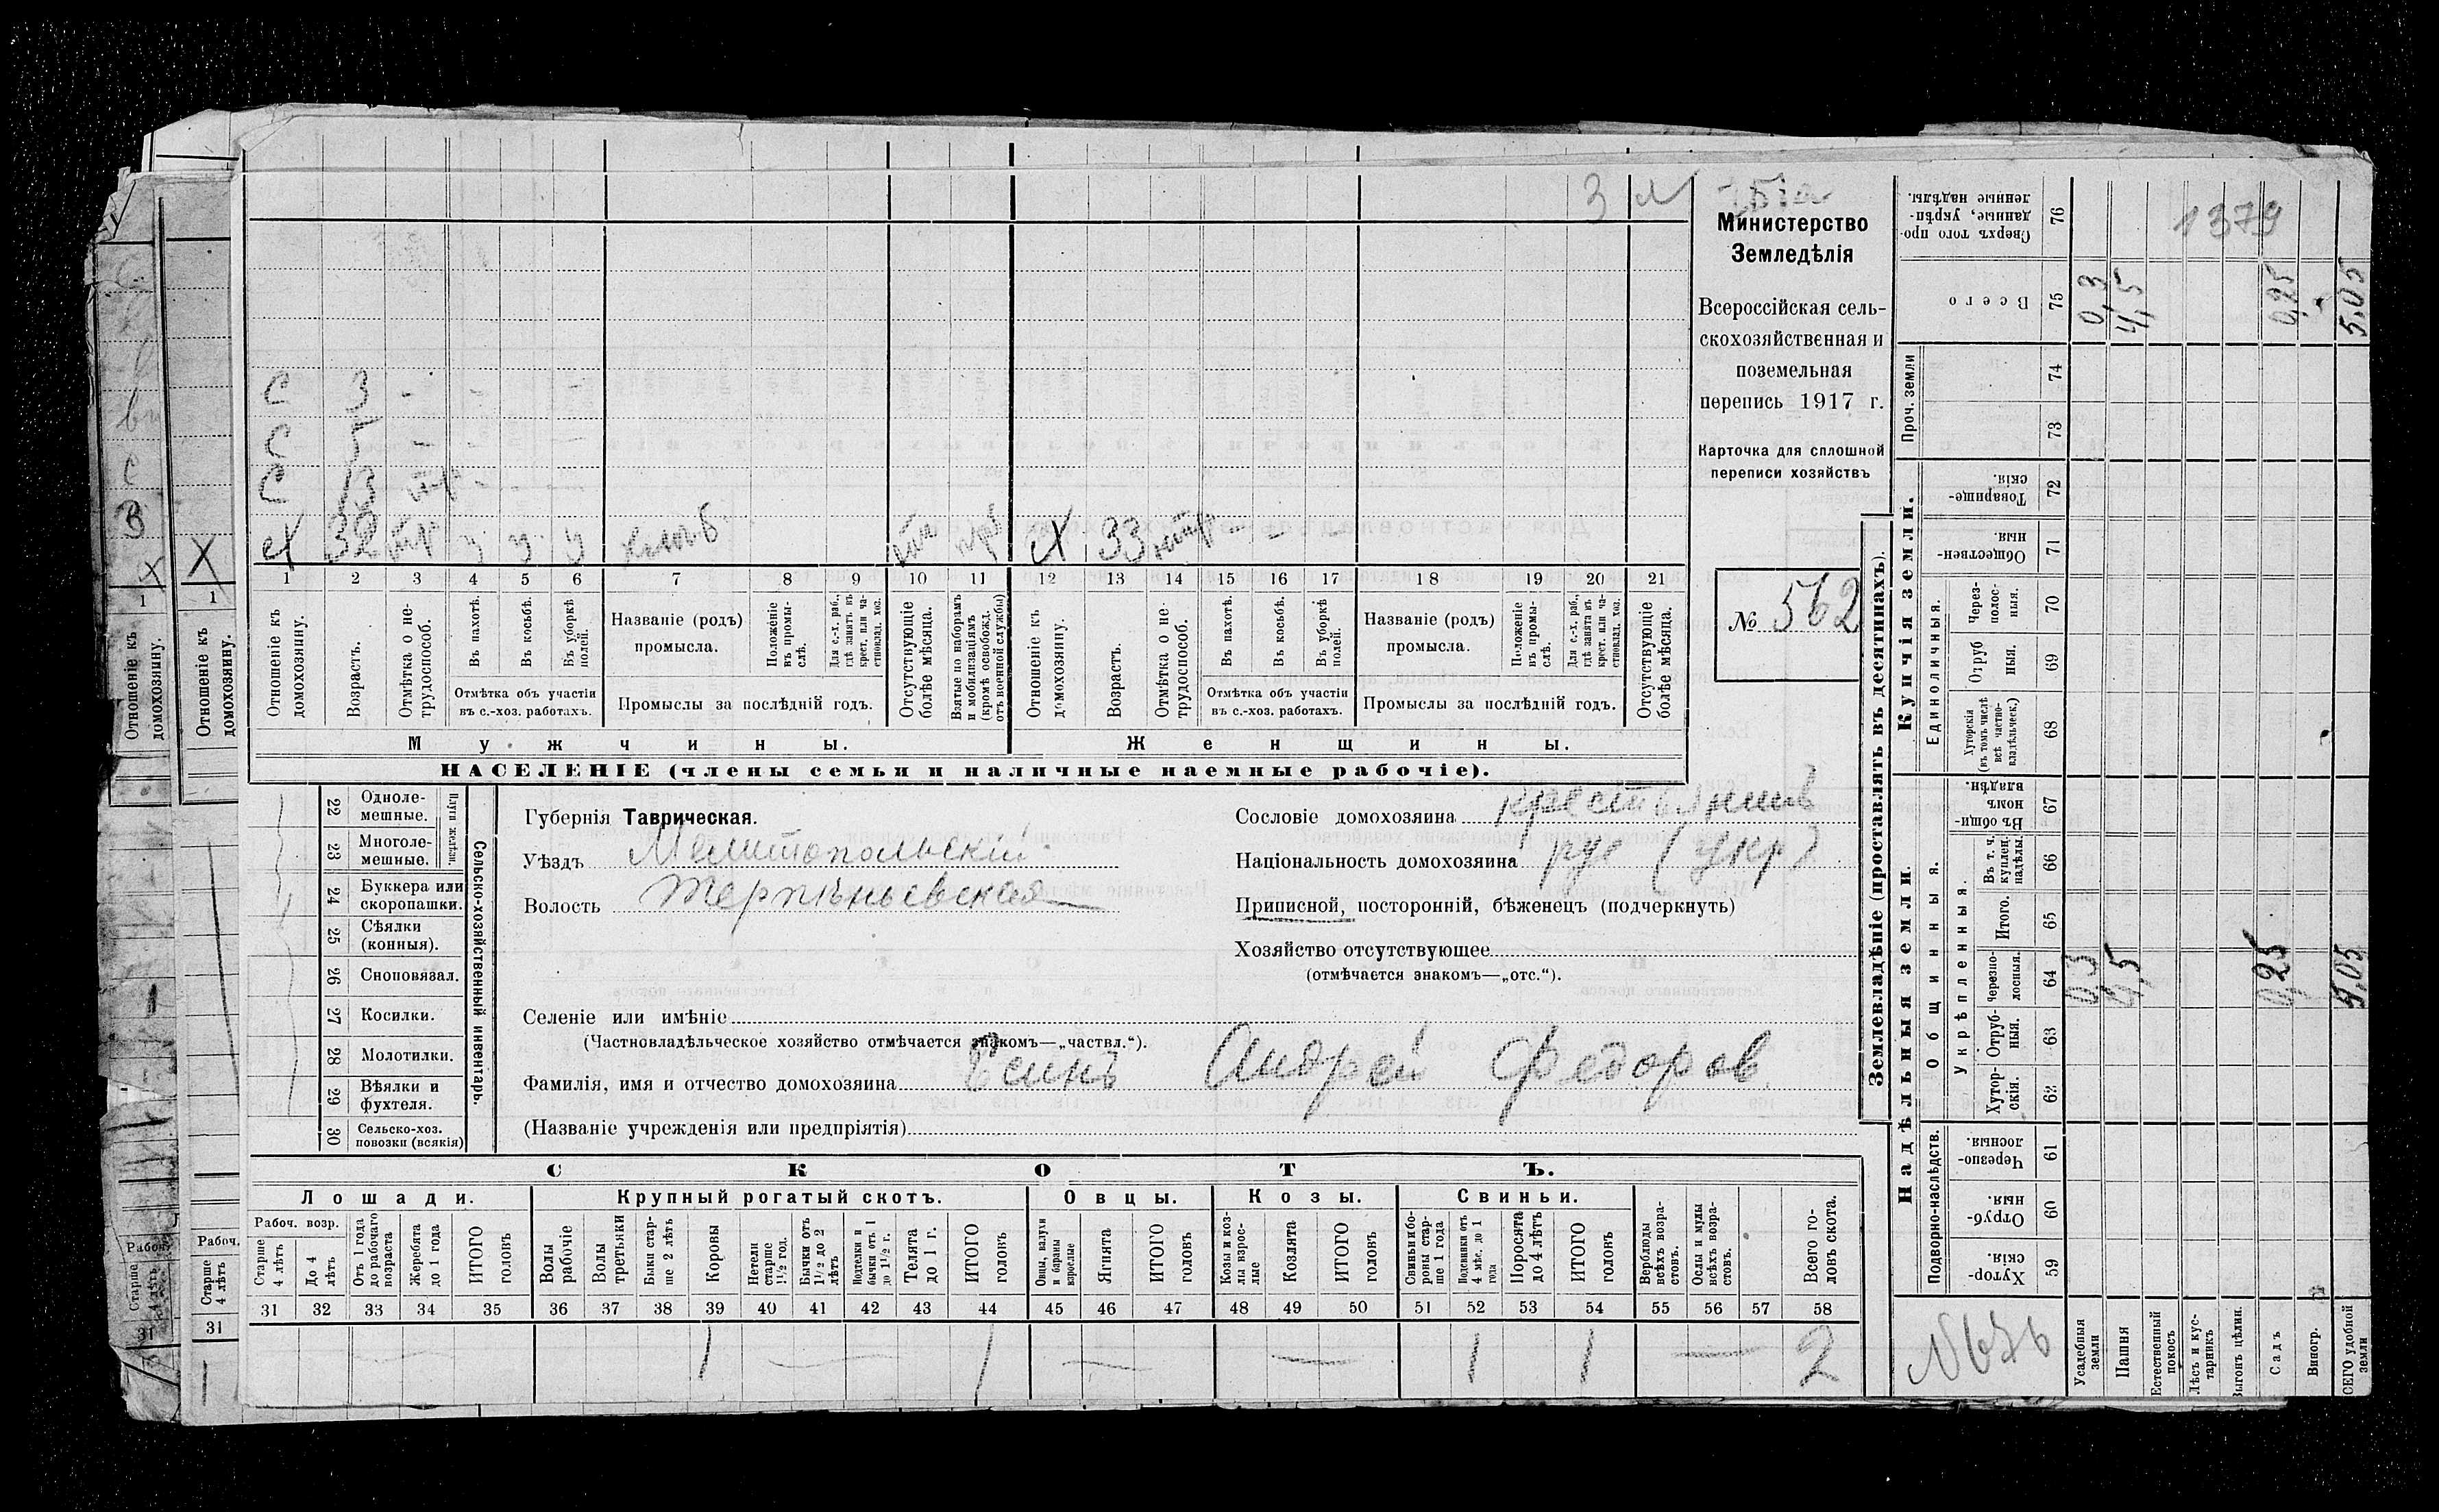 3 м
Министерство
Земледѣлія
Всероссійская сель-
скохозяйственная и
поземельная
перепись 1917 г.
Карточка для сплошной
переписи хозяйствъ
№ 562
С 3 - -
С 5 - - - -
С 13
Х 32 у у у Х 33
1 2 3 4 5 6 7 8 9 10 11 12 13 14 15 16 17 18 19 20 21
Отношеніе къ домохозяину.
Возрастъ.
Отмѣтка о не-трудоспособ.
Въ пахотѣ.
Въ косьбѣ.
Въ уборкѣ полей.
Отмѣтка объ участіи
въ с.-хоз. работахъ.
Названіе (родъ)
промысла.
Положеніе въ промы-слѣ.
Для с.-х. раб., гдѣ занятъ въ крест. или ча-стновлад. хоз.
Промыслы за послѣдній годъ.
Отсутствующіе болѣе мѣсяца.
Взятые по наборамъ и мобилизаціямъ (кромѣ освобожд. отъ военной службы)
Отношеніе къ домохозяину.
Возрастъ.
Отмѣтка о не-трудоспособ.
Въ пахотѣ.
Въ косьбѣ.
Въ уборкѣ полей.
Отмѣтка объ участіи
въ с.-хоз. работахъ.
Названіе (родъ)
промысла.
Положеніе въ промы-слѣ.
Для с.-х. раб., гдѣ занята въ крест. или ча-стновлад. хоз.
Промыслы за послѣдній годъ.
Отсутствующіе болѣе мѣсяца.
Мужчины. Женщины.
НАСЕЛЕНІЕ (члены семьи и наличные наемные рабочіе).
22 Одноле-мешные.
23 Многоле-мешные.
Плуги желѣзн.
24 Буккера или скоропашки.
25 Сѣялки (конныя).
26 Сноповязал.
27 Косилки.
28 Молотилки.
29 Вѣялки и фухтеля.
30 Сельско-хоз. повозки (всякія)
Сельско-хозяйственный инвентарь.
Губернія Таврическая.
Уѣздъ Мелитопольскій
Волость Терпѣньевская
Сословіе домохозяина крестьянинъ
Національность домохозяина рус (укр)
Приписной, посторонній, бѣженецъ (подчеркнуть)
Хозяйство отсутствующее
(отмѣчается знакомъ—„отс.“).
Селеніе или имѣніе
(Частновладѣльческое хозяйство отмѣчается знакомъ—„частвл.“).
Фамилія, имя и отчество домохозяина Есинъ Андрей Федоров
(Названіе учрежденія или предпріятія)
СКОТЪ.
Лошади. Крупный рогатый скотъ. Овцы. Козы. Свиньи.
Рабоч. возр.
Старше 4 лѣтъ
До 4 лѣтъ
Отъ 1 года до рабочаго возраста
Жеребята до 1 года
ИТОГО головъ
Волы рабочіе
Волы третьяки
Быки стар-ше 2 лѣтъ
Коровы
Нетели старше 1½ год.
Бычки отъ 1½ до 2 лѣтъ
Подтелки и бычки отъ 1 до 1½ г.
Телята до 1 г.
ИТОГО головъ
Овцы, валухи и бараны взрослые
Ягнята
ИТОГО головъ
Козы и коз-лы взрос-лые
Козлята
ИТОГО головъ
Свиньи и бо-ровы стар-ше 1 года
Подсвинки отъ 4 мѣс. до 1 года
Поросята до 4 лѣтъ
ИТОГО головъ
Верблюды всѣхъ возра-стовъ.
Ослы и мулы всѣхъ возра-стовъ.
Всего го-ловъ скота.
31 32 33 34 35 36 37 38 39 40 41 42 43 44 45 46 47 48 49 50 51 52 53 54 55 56 57 58
1 1 1 1 2
Землевладѣніе (проставлять въ десятинахъ).
Надѣльныя земли. Купчія земли. Проч. земли
Подворно-наслѣдств.
Общинныя.
Укрѣпленныя.
Единоличныя.
Хутор-скія. 59
Отруб-ныя. 60
Черезпо-лосныя. 61
Хутор-скія. 62
Отруб-ныя. 63
Черезпо-лосныя. 64
Итого. 65
Въ т. ч. куплен. надѣлы. 66
Въ общи-номъ владѣн. 67
Хуторскія (въ томъ числѣ всѣ частно-владѣльческ.) 68
Отруб ныя. 69
Через-полос-ныя. 70
Обществен-ныя. 71
Товарище-скія. 72
73
74
Всего 75
Сверхъ того про-данные, укрѣп-ленные надѣлы. 76
1379
Усадебныя земли 0,3 0,3
Пашня 4,5 4,5
Естественный покосъ
Лѣсъ и кус-тарникъ
Выгонъ цѣлин.
Садъ 0,25 0,25
Виногр.
СЕГО удобной земли 5,05 5,05
Отношеніе къ домохозяину.
Отношеніе къ домохозяину.
Рабоч.
Рабоч.
Старше 4 лѣтъ
Старше 4 лѣтъ
31
31